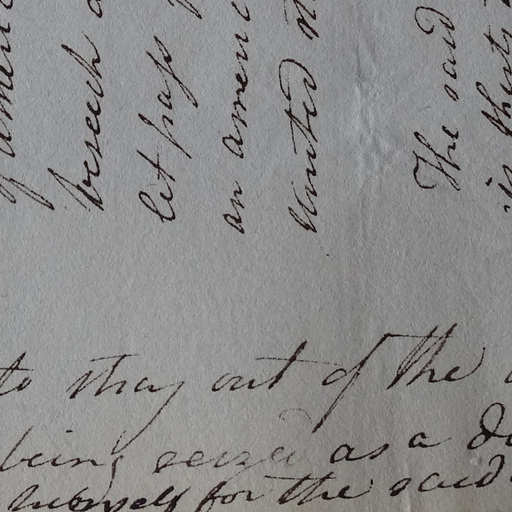 beseech
let pass
an amen
United
The said
in thirty
to stay out of the
being seized as a
himself for the said